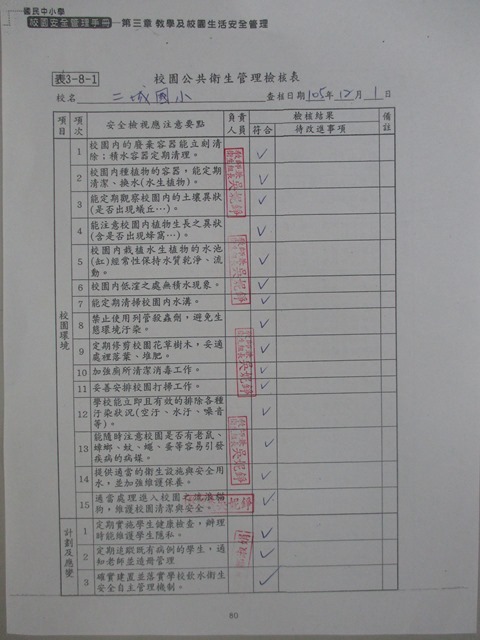 國民中小學
校園安全管理手冊 第三章 教學及校園生活安全管理
表3-8-1 校園公共衛生管理檢核表
校名 二城國小 查核日期105年12月1日
項目 項次 安全檢視應注意要點 負責人員 檢核結果 備註
符合 待改進事項
校園環境
1 校園內的廢棄容器能立刻清
除；積水容器定期清理。 ✓
2 校園內種植物的容器，能定期
清潔、換水(水生植物)。 ✓
3 能定期觀察校園內的土壤異狀
(是否出現蟻丘…)。 ✓
4 能注意校園內植物生長之異狀
(含是否出現蜂窩…)。 ✓
5 校園內栽植水生植物的水池
(缸)經常性保持水質乾淨、流
動。 ✓
6 校園內低窪之處無積水現象。 ✓
7 能定期清掃校園內水溝。 ✓
8 禁止使用列管殺蟲劑，避免生
態環境汙染。 ✓
9 定期修剪校園花草樹木，妥適
處裡落葉、堆肥。 ✓
10 加強廁所清潔消毒工作。 ✓
11 妥善安排校園打掃工作。 ✓
12 學校能立即且有效的排除各種
汙染狀況(空汙、水汙、噪音
等)。 ✓
13 能隨時注意校園是否有老鼠、
蟑螂、蚊、蠅、蚤等容易引發
疾病的病媒。 ✓
14 提供適當的衛生設施與安全用
水，並加強維護保養。 ✓
15 適當處理進入校園之流浪貓
狗，維護校園清潔與安全。 ✓
計劃及應變
1 定期實施學生健康檢查，辦理
時能維護學生隱私。 ✓
2 定期追蹤既有病例的學生，通
知老師並造冊管理 ✓
3 確實建置並落實學校飲水衛生
安全自主管理機制。 ✓
80